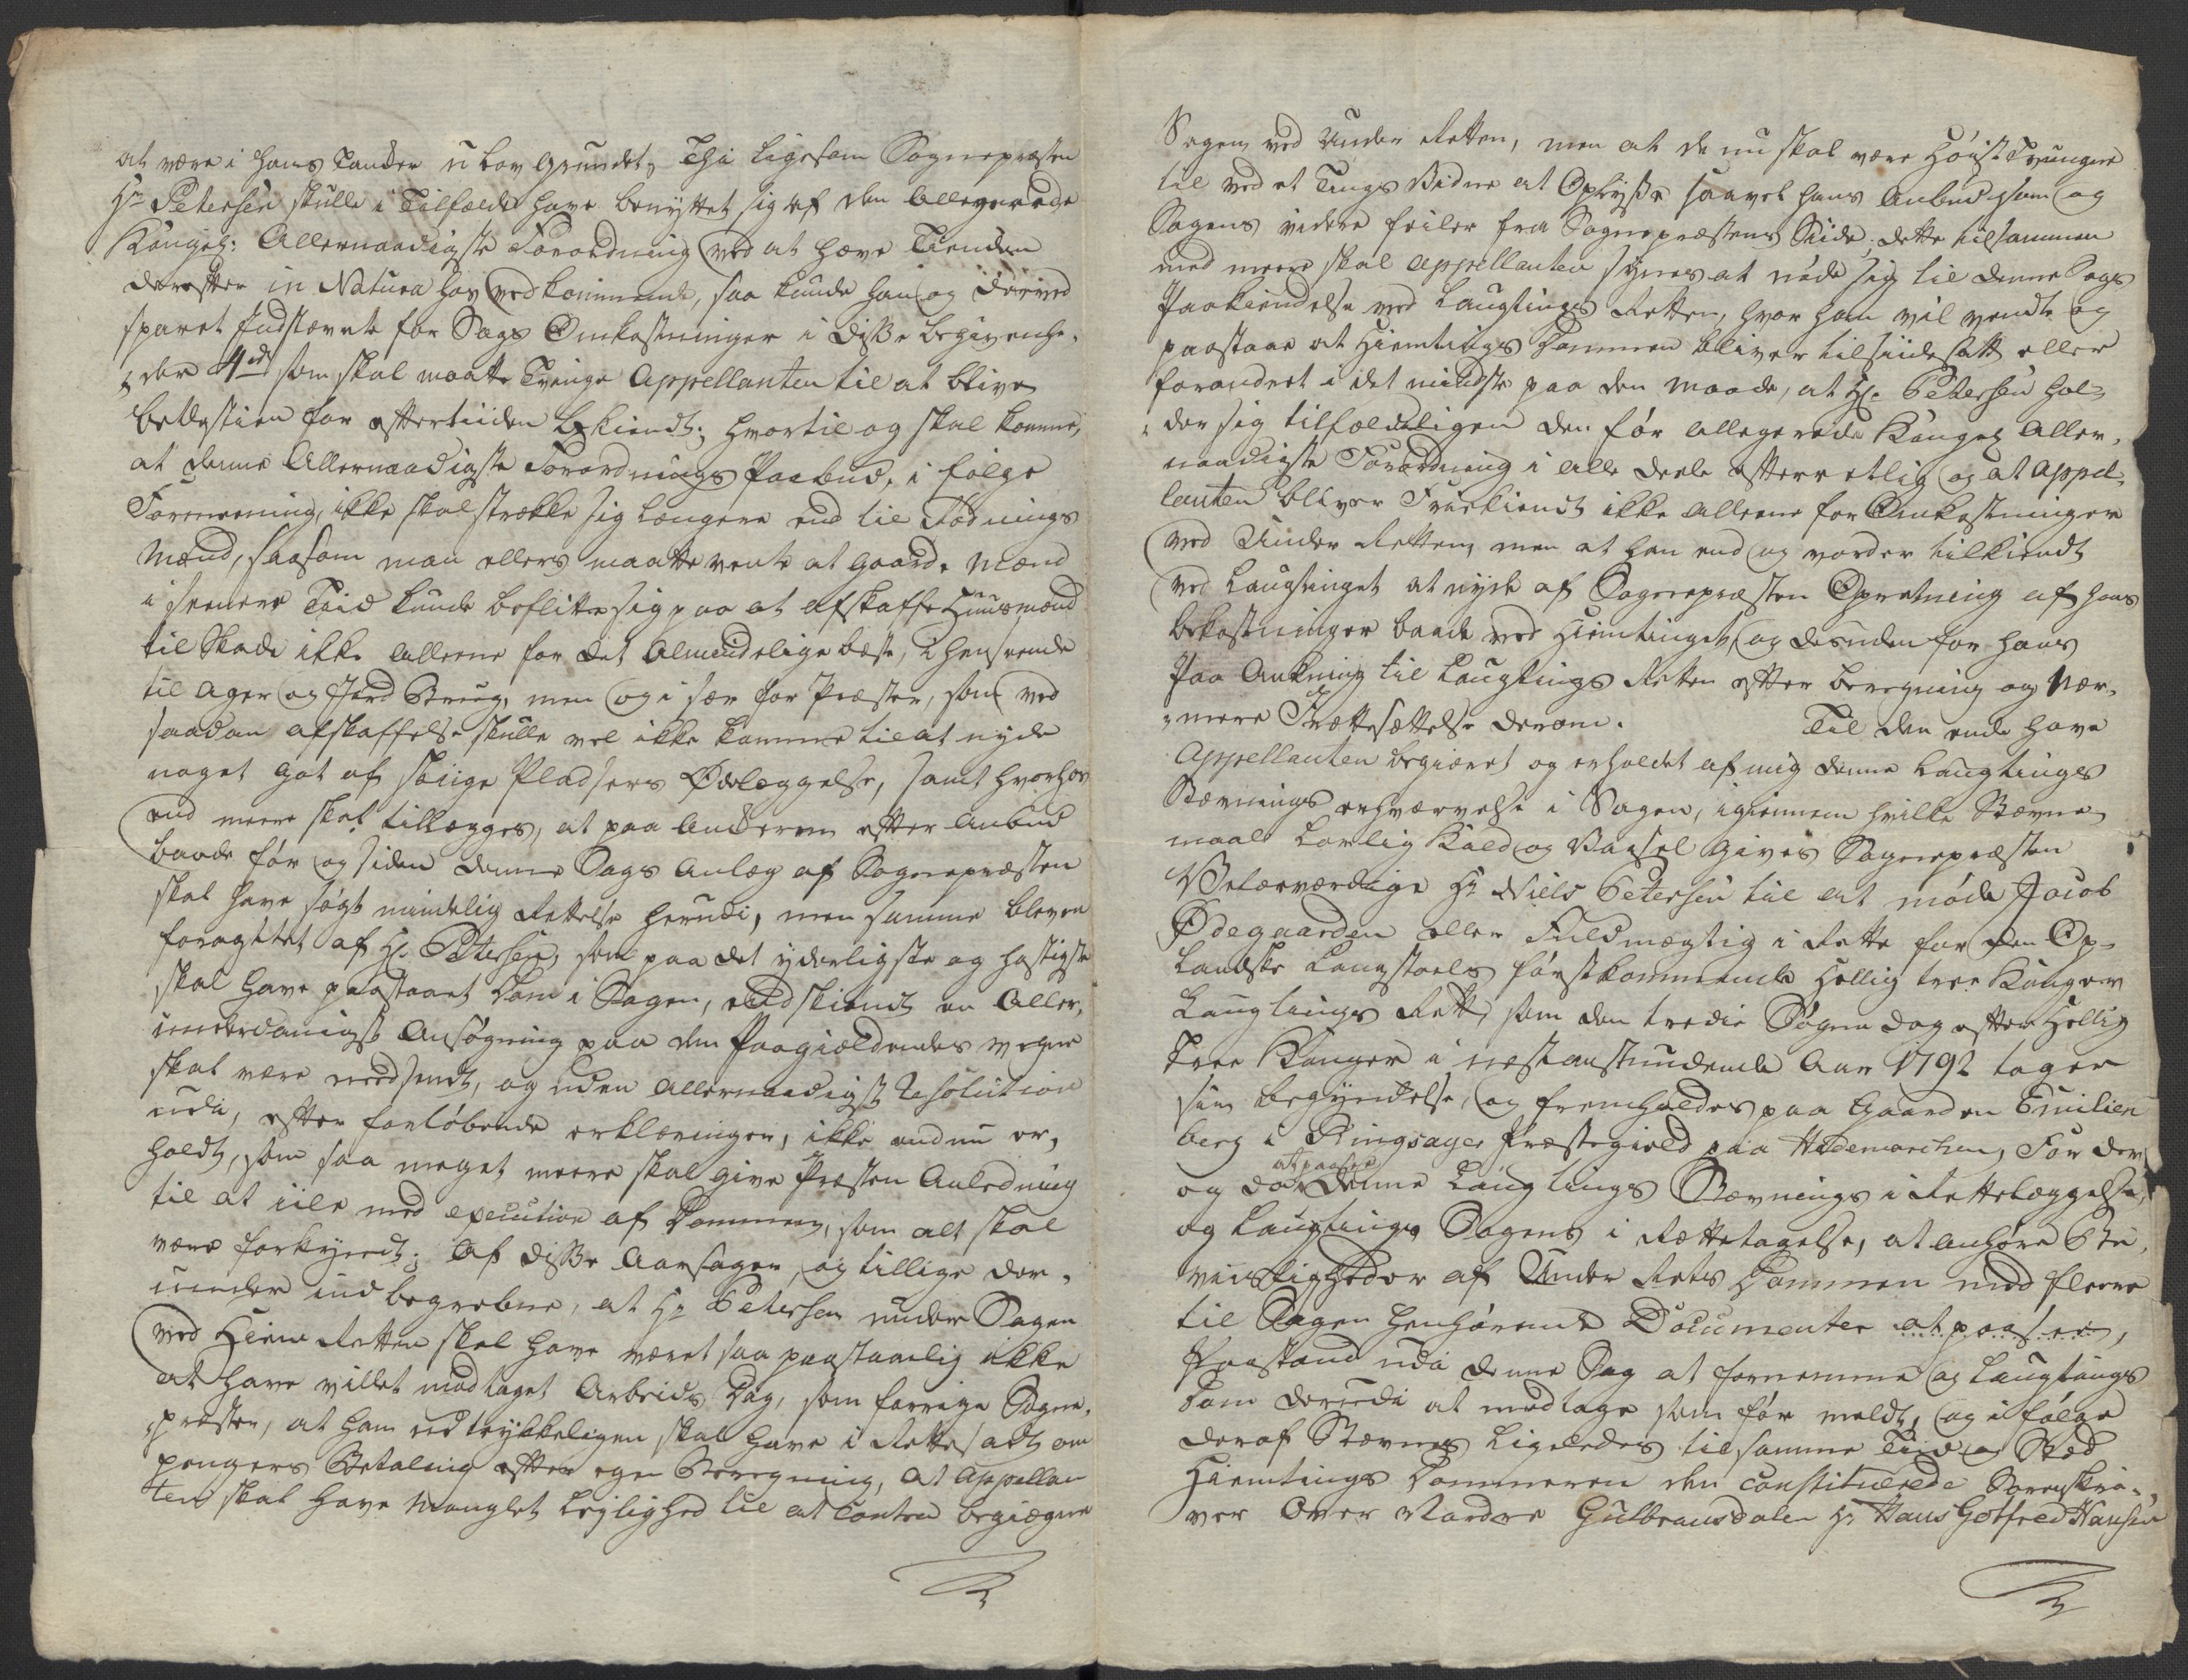 at være i hans Tanker u lov grundet, Thi ligesom Sognepræsten
Hr Petersen skulle i Tilfælde have benyttet sig af den allegerede
Kongel: Allernaadigste Forordning ved at hæve Tienden
derefter in Natura hos vedkommende, saa kunde han og derved
sparet Indstævnte for Sags Omkostninger i disse begivenhe-
der 4de som skal maatte tvinge Appellanten til at blive
betlestien for eftertiiden bekiendt; hvortil og skal komme,
at denne Allernaadigste Forordnings Paabud, i følge
Formeening, ikke skal strekke sig længere end til Rødnings
Mænd, saasom man ellers maatte vente at gaard Mænd
i seenere Tiid kunde beflitte sig paa at afskaffe Huusmænd
til Skade ikke alleene for det Almindelige beste, i henseende
til ager og Jord Brug, men og i sær for Præster, som ved
saadan afskaffelse skulle vel ikke komme til at nyde
noget got af saadanne Pladsers Ødelæggelse, samt hvorhos
end meere skal tillægges, at paa Anderen efter Anbud
baade før og siden denne Sags Anlæg af Sognepræsten
skal have søgt mindelig Rettelse herudi, men samme bleven
foragtet af Hr. Petersen, som paa det yderligste og hastigste
skal have paastaaet Dom i Sagen, endskiøndt en Aller-
underdanigst Ansøgning paa den Paagieldendes vegne
skal være needsendt, og uden allernaadigst Resolution
udi, efter forløbende erklæringer, ikke endnu er-
holdt, som saa meget meere skal give Præsten Anledning
til at iile med execution af Dommen, som alt skal
være forkyndt; Af disse Aarsager, og tillige der-
under indbegrebne, at Hr Petersen under Sagen
ved Hiem Retten skal have været saa paastaaelig ikke
at have villet modtaget Arbeids Dag, som forrige Sogne-
præster, at ham udtrykkeligen skal have i Rettesadt om
pengers Betaling efter egen Beregning, at Appellan
ten skal have manglet Leylighed til at Contra begiegne
Sagen ved Under Retten, men at de nu skal være Høist tvungne
til ved et Tings Vidne at Oplyse saavel hans Anbud som og
Sagens videre feiler fra Sognepræstens Side; dette tilsammen
med meere skal appellanten synes at nøde sig til denne Sags
Paakiendelse ved Laugtings Retten, hvor han vil vendte og
paastaae at Hiemtings Dommen bliver tilsiidesatt eller
forandret i det mindste paa den maade, at Hr. Petersen hol-
der sig tilfældeligen den før allegerede Kongel Aller-
naadigste Forordning i alle deele efterrettelig og at Appel-
lanten bliver Friekiendt ikke alleene for Omkostninger
ved Under Retten, men at han end og vorder tilkiendt
ved Laugtinget at nyde af Sognepræsten Opretning af hans
bekostninger baade ved Hiemtinget, og desuden for hans
Paa Ankning til Laugtings Retten efter beregning og nær-
mere Trættesættelse derom. Til den ende have
Appellanten begiæret og erholdet af mig denne Laugtings
Stævnings erhværvelse i Sagen, igiennem hvilke Stævne
maal lovlig Kald og Varsel gives Sognepræsten
Velærværdige Hr Niels Petersen til at møde Jacob
Ødegaarden eller Fuldmægtig i Rette for den Op-
landske Laugstoels førstkommende Hellig tree Konger
Laugtings Rett, som den tredie Søgne dag efter Hellig
tree Konger i næstanstundende Aar 1792 tager
sin begyndelse, og fremholdes paa Gaarden Emilien
berg i Ringsager Præstegield paa Hedemarchen, For der
og da at paasee denne Laugtings Stævnings i Rettelæggelse,
og Laugtings Sagens i Rættetagelse, at anhøre Be-
viisligheder af Under Rets Dommen med fleere
til Sagen henhørende Documenter at paasee,
Paastand udi denne Sag at fornemme og Laugtings
Dom derudi at modtage som før meldt, og i følge
deraf Stævnes ligeledes til samme Tiid og Sted
Hiemtings Dommeren den constituerede Sorenskri-
ver Over Nordre Gulbransdalen Hr Hans Gotfred Hansen